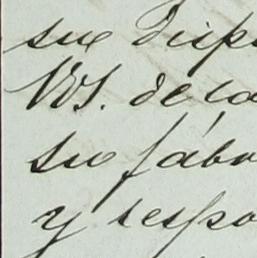 su disp
VS. de la
su fábr
y respo